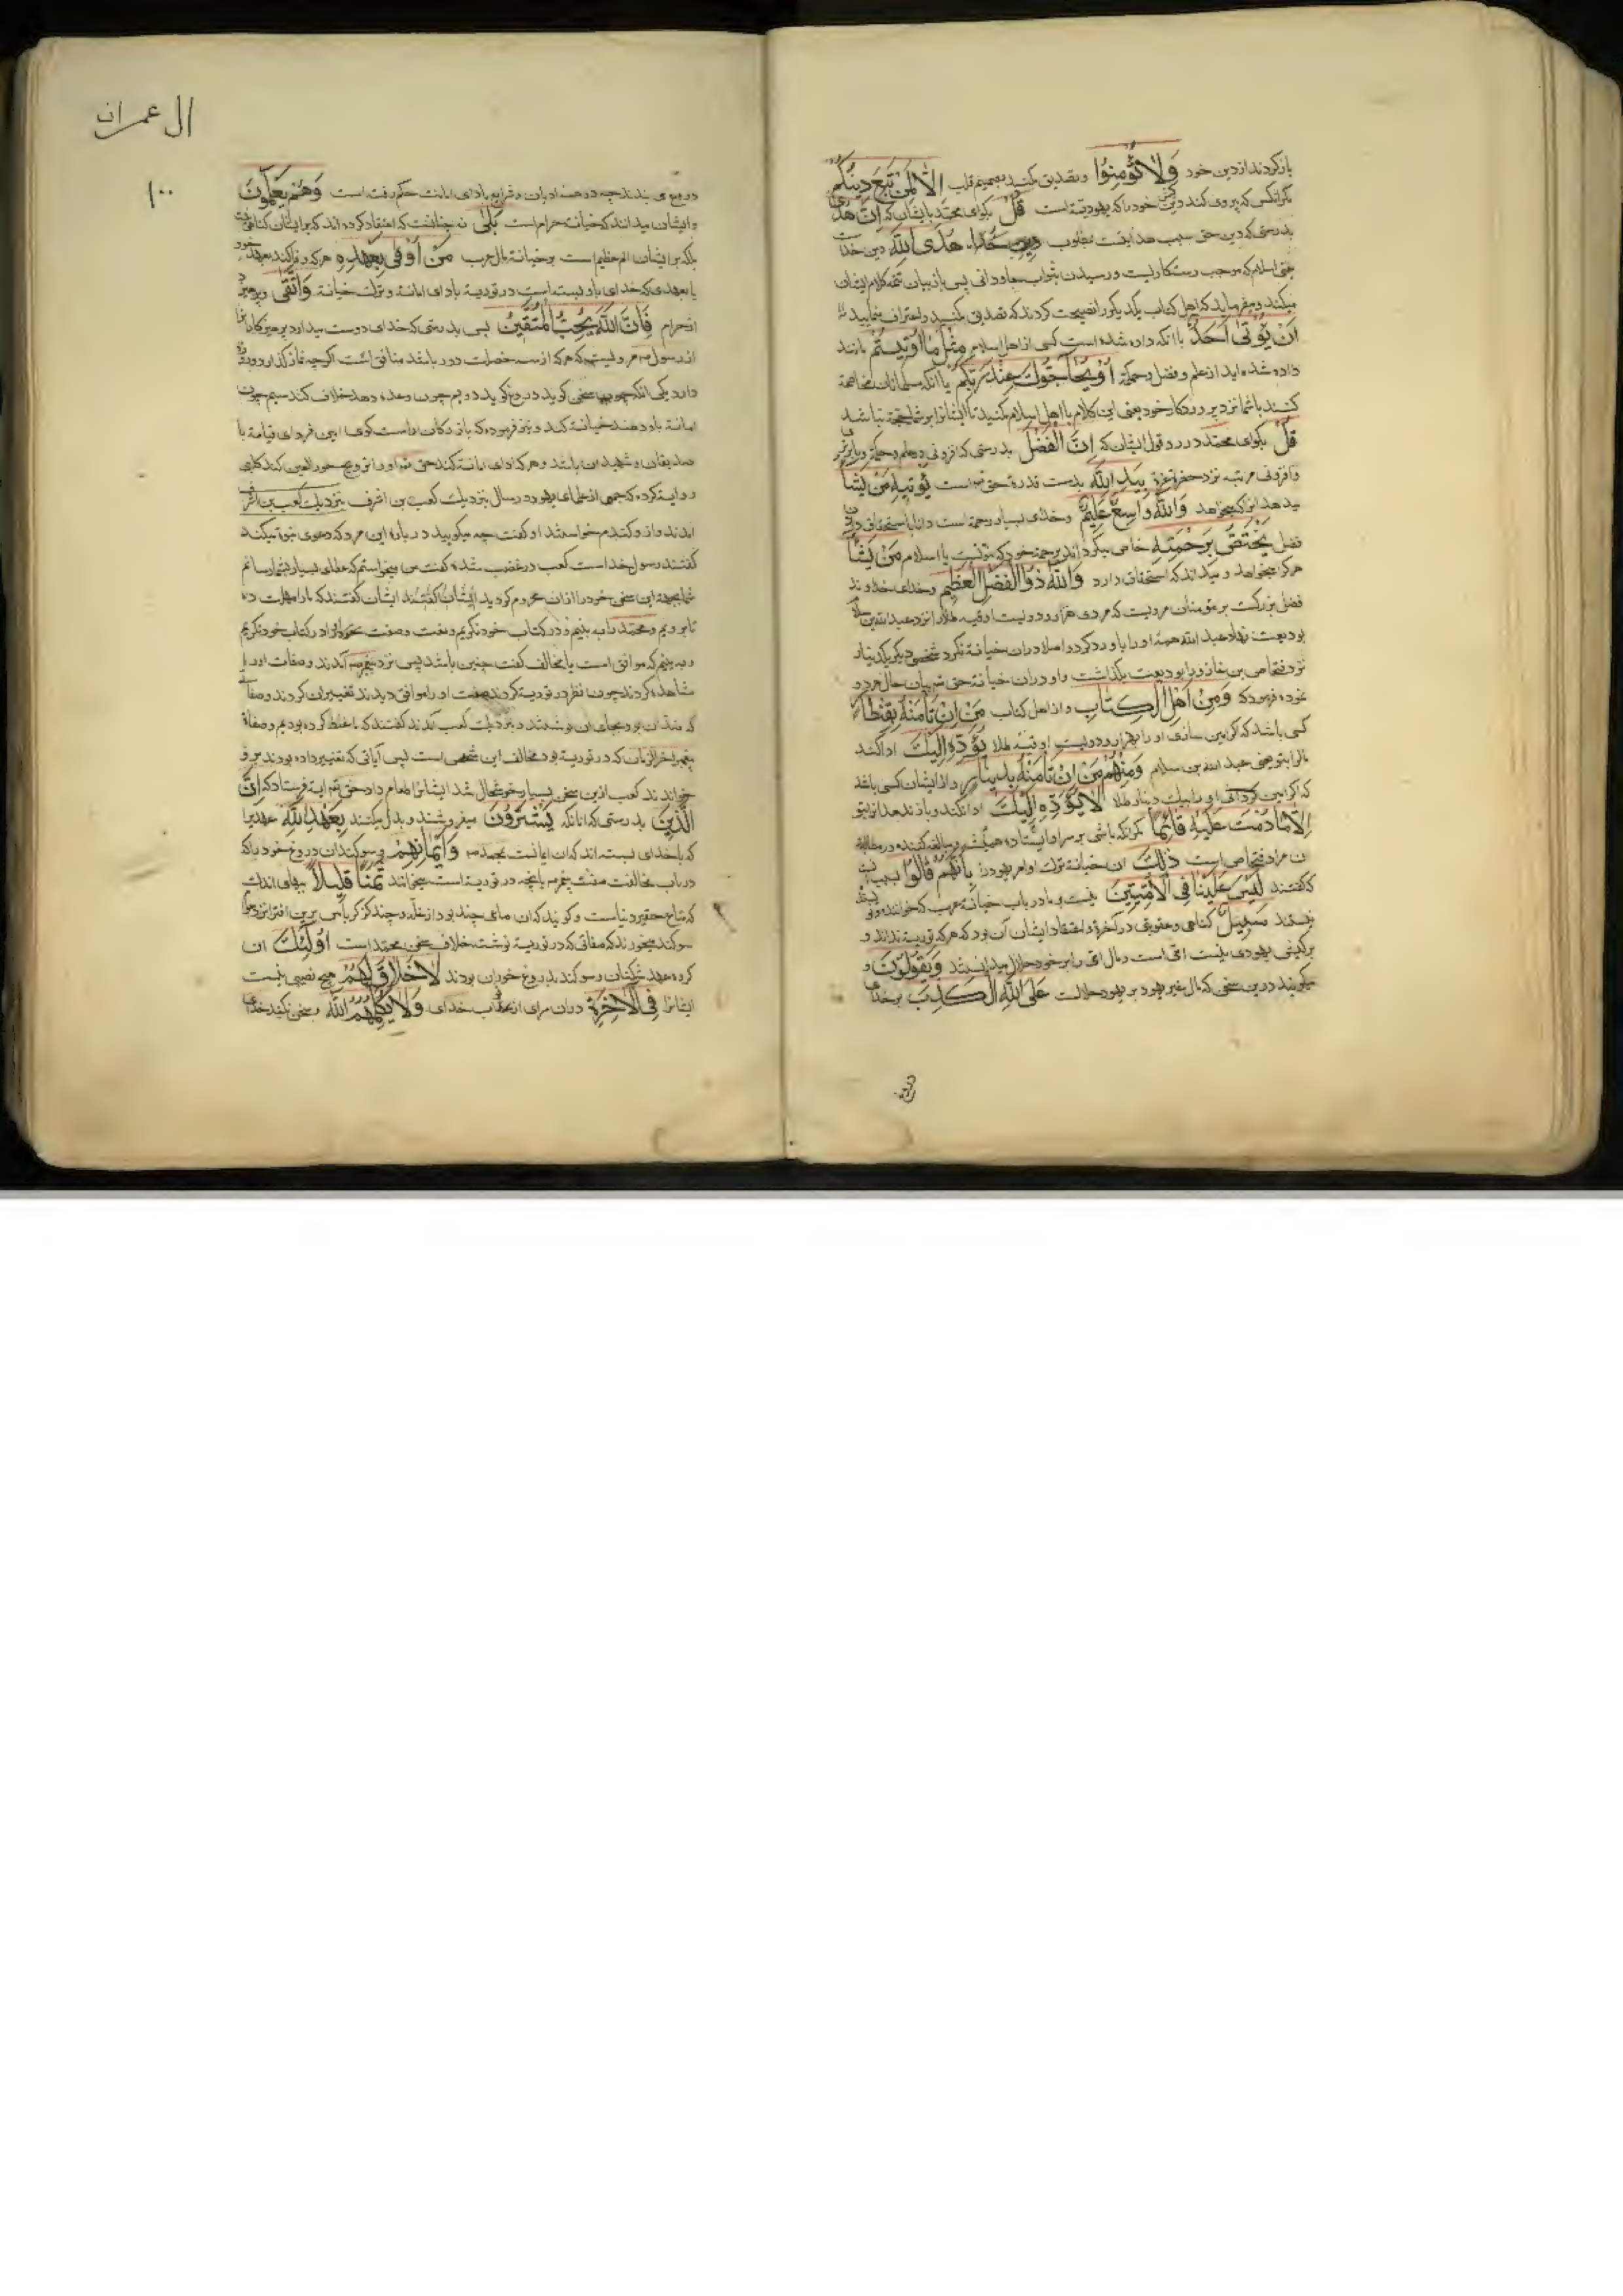 بازکردند از دین خود وَلَا تُؤْمِنُوا و تصدیق مکنید بصمیم قلب اِلَّا لِمَنْ تَبِعَ دِینَکُمْ
مکر انکس که پیروی کند دین خود را که یهودیتست قُلْ بکو ای محمد بایشان که اِنَّ الْهُدٰی
بدرستی که دین حق سبب هدایت مطلوب هُدَی اللّٰهِ دین خداست
یعنی اسلام که موجب رستکاریست و رسیدن بثواب جاودانی پس باز بیان تتمه کلام ایشان
میکند و میفرماید که اهل کتاب یکدیکر را نصیحت کردند که تصدیق مکنید و اعتراف منمایید
اَنْ یُؤْتٰی اَحَدٌ باانکه داده شده است کسی از اهل اسلام مِثْلَ مَا اُوتِیتُمْ مانند
داده شده اید از علم و فضل و حکمة اَوْ یُحَاجُّوکُمْ عِنْدَ رَبِّکُمْ یا انکه مسلمانان مخاصمة
کنند باشما نزد پروردکار خود یعنی این کلام با اهل اسلام مکنید تا ایشانرا بر شما حجة نباشد
قُلْ بکو ای محمد در رد قول ایشان که اِنَّ الْفَضْلَ بدرستی که افزونی در علم و حکمة
و افزونی مرتبه نزد حضرة عزة بِیَدِ اللّٰهِ بدست قدرة حق است یُؤْتِیهِ مَنْ یَشَاءُ
میدهد انرا که میخواهد وَاللّٰهُ وَاسِعٌ عَلِیمٌ و خدای بسیار رحمة است دانا باستحقاق
فضل یَخْتَصُّ بِرَحْمَتِهِ خاص میکرداند برحمة خود که نبوتست یا اسلام مَنْ یَشَاءُ
هر کرا میخواهد و میداند که استحقاق دارد وَاللّٰهُ ذُو الْفَضْلِ الْعَظِیمِ و خدای خداوند
فضل بزرکست بر مؤمنان مرویست که مردی هزار و دویست اوقیه طلا را نزد عبد الله بن سلام
بودیعت نهاد عبد الله همه را باو رد کرد و اصلا دران خیانة نکرد شخص دیکر یکدینار
نزد فنحاص بن عازورا بودیعت بکذاشت و او دران خیانة حق بیان حال هر دو
نموده فرمود که وَمِنْ اَهْلِ الْکِتَابِ و از اهل کتاب مَنْ اِنْ تَأْمَنْهُ بِقِنْطَارٍ
کسی باشد که اکر امین سازی او را بهزار و دویست اوقیه طلا یُؤَدِّهِ اِلَیْکَ ادا کند
مالرا بتو یعنی عبد الله بن سلام وَمِنْهُمْ مَنْ اِنْ تَأْمَنْهُ بِدِینَارٍ و از ایشان کسی باشد
که اکر امین کردانی او را بیک دینار طلا لَا یُؤَدِّهِ اِلَیْکَ ادا نکند و باز ندهد انرا بتو
اِلَّا مَا دُمْتَ عَلَیْهِ قَائِمًا مکر انکه باشی بر سر او ایستاده و مبالغه کننده در مطالبه
ان مراد فنحاص است ذٰلِکَ ان خیانة و ترک اوامر یهود را بِاَنَّهُمْ قَالُوا بسبب انست
که کفتند لَیْسَ عَلَیْنَا فِی الْاُمِّیِّینَ نیست بر ما در باب خیانة عرب که خواننده
نیستند سَبِیلٌ کناهی و عقوبتی در آخرة و اعتقاد ایشان آن بود که هر که توریة نداند و
بر کیش یهودی نیست امی است و مال امی را بر خود حلال میدانستند وَیَقُولُونَ و
میکویند درین سخن که مال غیر یهود بر یهود حلالست عَلَی اللّٰهِ الْکَذِبَ بر خدای
دروغ
ال عمران
۱۰۰
دروغی بندند چه در همه ادیان و شرایع بادای امانت حکم رفت است وَهُمْ یَعْلَمُونَ
و ایشان میدانند که خیانة حرام است بَلٰی نه چنانست که اعتقاد کرده اند که بر ایشان کناهی نیست
بلکه بر ایشان اثم عظیم است بر خیانة مال عرب مَنْ اَوْفٰی بِعَهْدِهِ هر که وفا کند بعهد خود
یا بعهدی که خدای باو بسته است در توریة بادای امانة و ترک خیانة وَاتَّقٰی و بپرهیزد
از حرام فَاِنَّ اللّٰهَ یُحِبُّ الْمُتَّقِینَ پس بدرستی که خدای دوست میدارد پرهیزکاران را
از رسول مرویست که هر که از سه خصلت دور باشد منافق است اکرچه نماز کذارد و روزه
دارد یکی انکه چون سخن کوید دروغ کوید دویم چون وعده دهد خلاف کند سیم چون
امانة باو دهند خیانة کند و نیز فرموده که بازرکان راست کوی امین فردای قیامة با
صدیقان و شهیدان باشد و هر که ادای امانة کند حق او را تزویج حور العین کند کلبی
روایة کرده که جمعی از علمای یهود در سال بنزدیک کعب بن اشرف بنزدیک کعب بن اشرف
امدند و از و کندم خواستند او کفت چه میکویید در باره این مرد که دعوی نبوة میکند
کفتند رسول خدا است کعب در غضب شده کفت من میخواستم که عطای بسیار بشما رسانم
شما بجهة این سخن خود را ازان محروم کردید ایشان کفتند ایشان کفتند که ما را مهلت ده
تا برویم و محمد را ببینیم و در کتاب خود نکریم و نعت و صفت او را در کتاب خود نکریم
و ببینیم که موافق است یا مخالف کفت چنین باشد پس نزد پیغمبر آمدند و صفات او را
مشاهده کردند چون نظر در توریة کردند صفت او را موافق دیدند تغییر ان کردند و صفاتی
که ضد ان بود بجای ان نوشتند و بنزدیک کعب آمدند کفتند که ما غلط کرده بودیم و صفاة
پیغمبر اخر الزمان که در توریة بود مخالف این شخص است پس آیاتی که تغییر داده بودند برو
خواندند کعب ازین سخن بسیار خوشحال شد ایشانرا طعام داد حق ایة فرستاد که اِنَّ
الَّذِینَ بدرستی که انانکه یَشْتَرُونَ میفروشند و بدل میکنند بِعَهْدِ اللّٰهِ عهدیرا
که با خدای بسته اند که ان ایمانست بمحمد وَاَیْمَانِهِمْ و سوکندان دروغ خود را که
در باب مخالفت صفت پیغمبر بانچه در توریة است میخوانند ثَمَنًا قَلِیلًا ببهای اندک
که متاع حقیر دنیاست و کویند که ان صاعی چند بود از غله و چند کز کرباس برین افترا
سوکند میخورند که صفاتی که در توریة نوشته خلاف سخن محمد است اُولٰئِکَ ان
کروه عهد شکنان و سوکند بدروغ خوران بودند لَا خَلَاقَ لَهُمْ هیچ نصیبی نیست
ایشانرا فِی الْاٰخِرَةِ دران سرای از ثواب خدای وَلَا یُکَلِّمُهُمُ اللّٰهُ و سخن نکند خدای